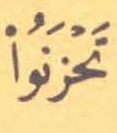 تَحْزَنُواْ